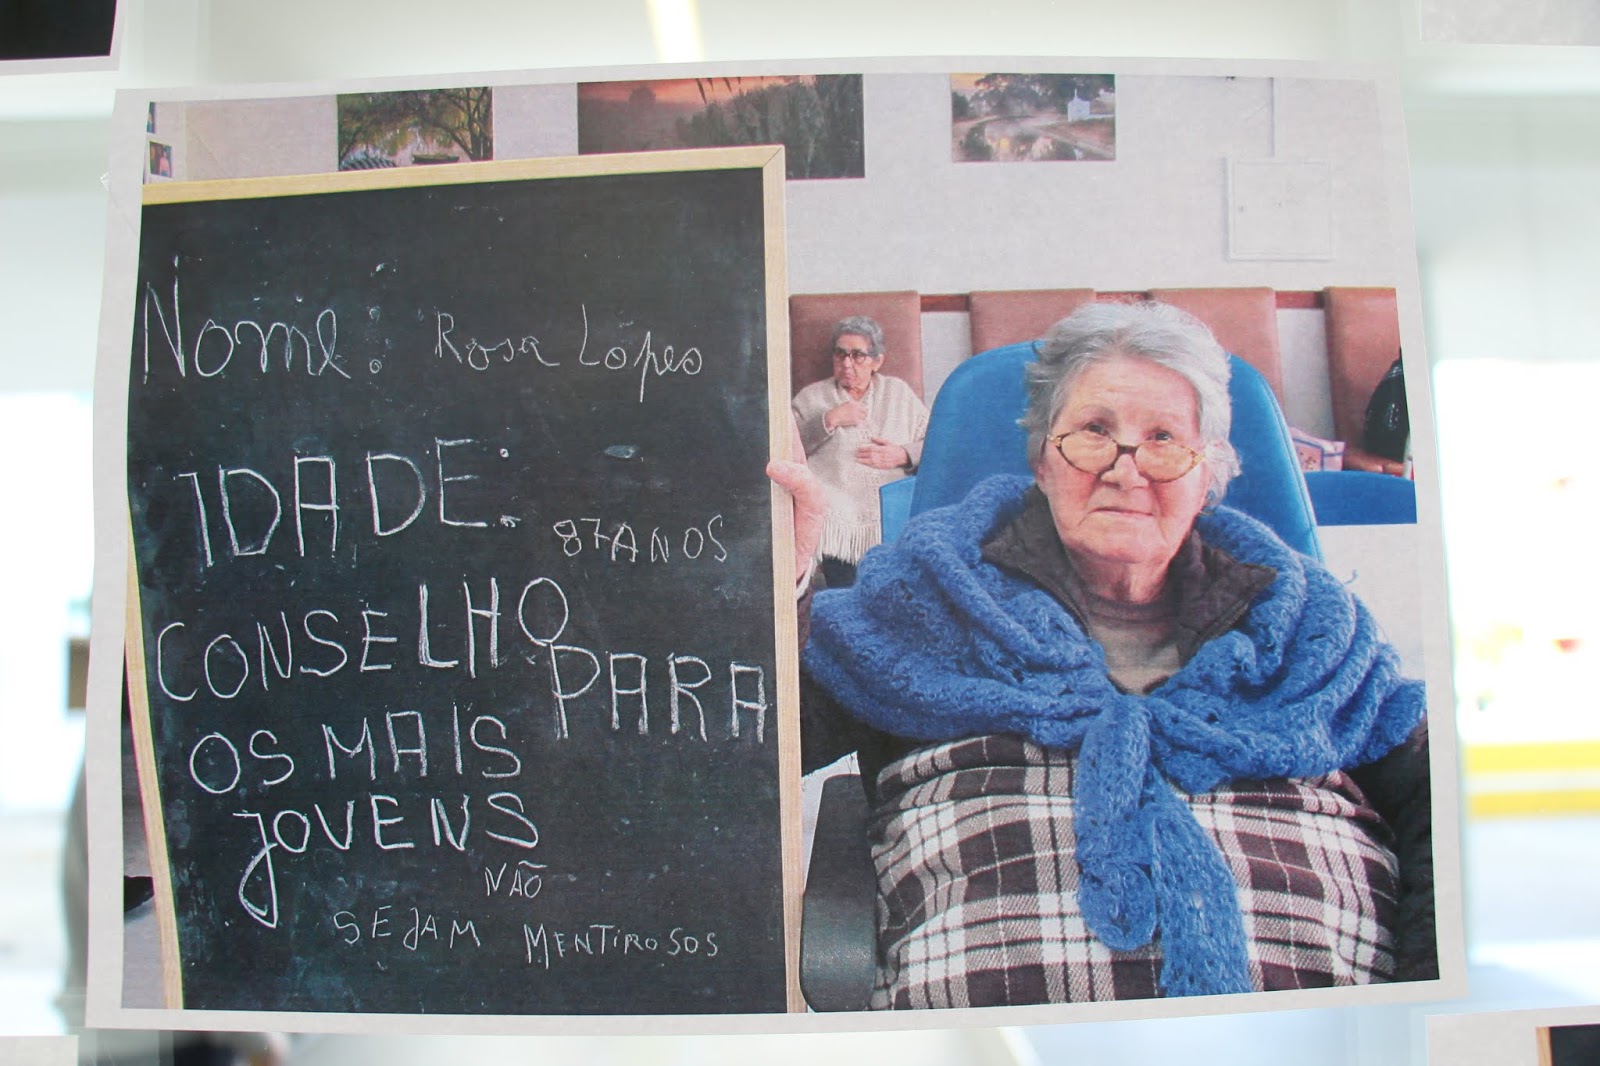 Nome: Rosa Lopes
IDADE: 87 ANOS
CONSELHO PARA
OS MAIS
JOVENS
NÃO
SEJAM MENTIROSOS